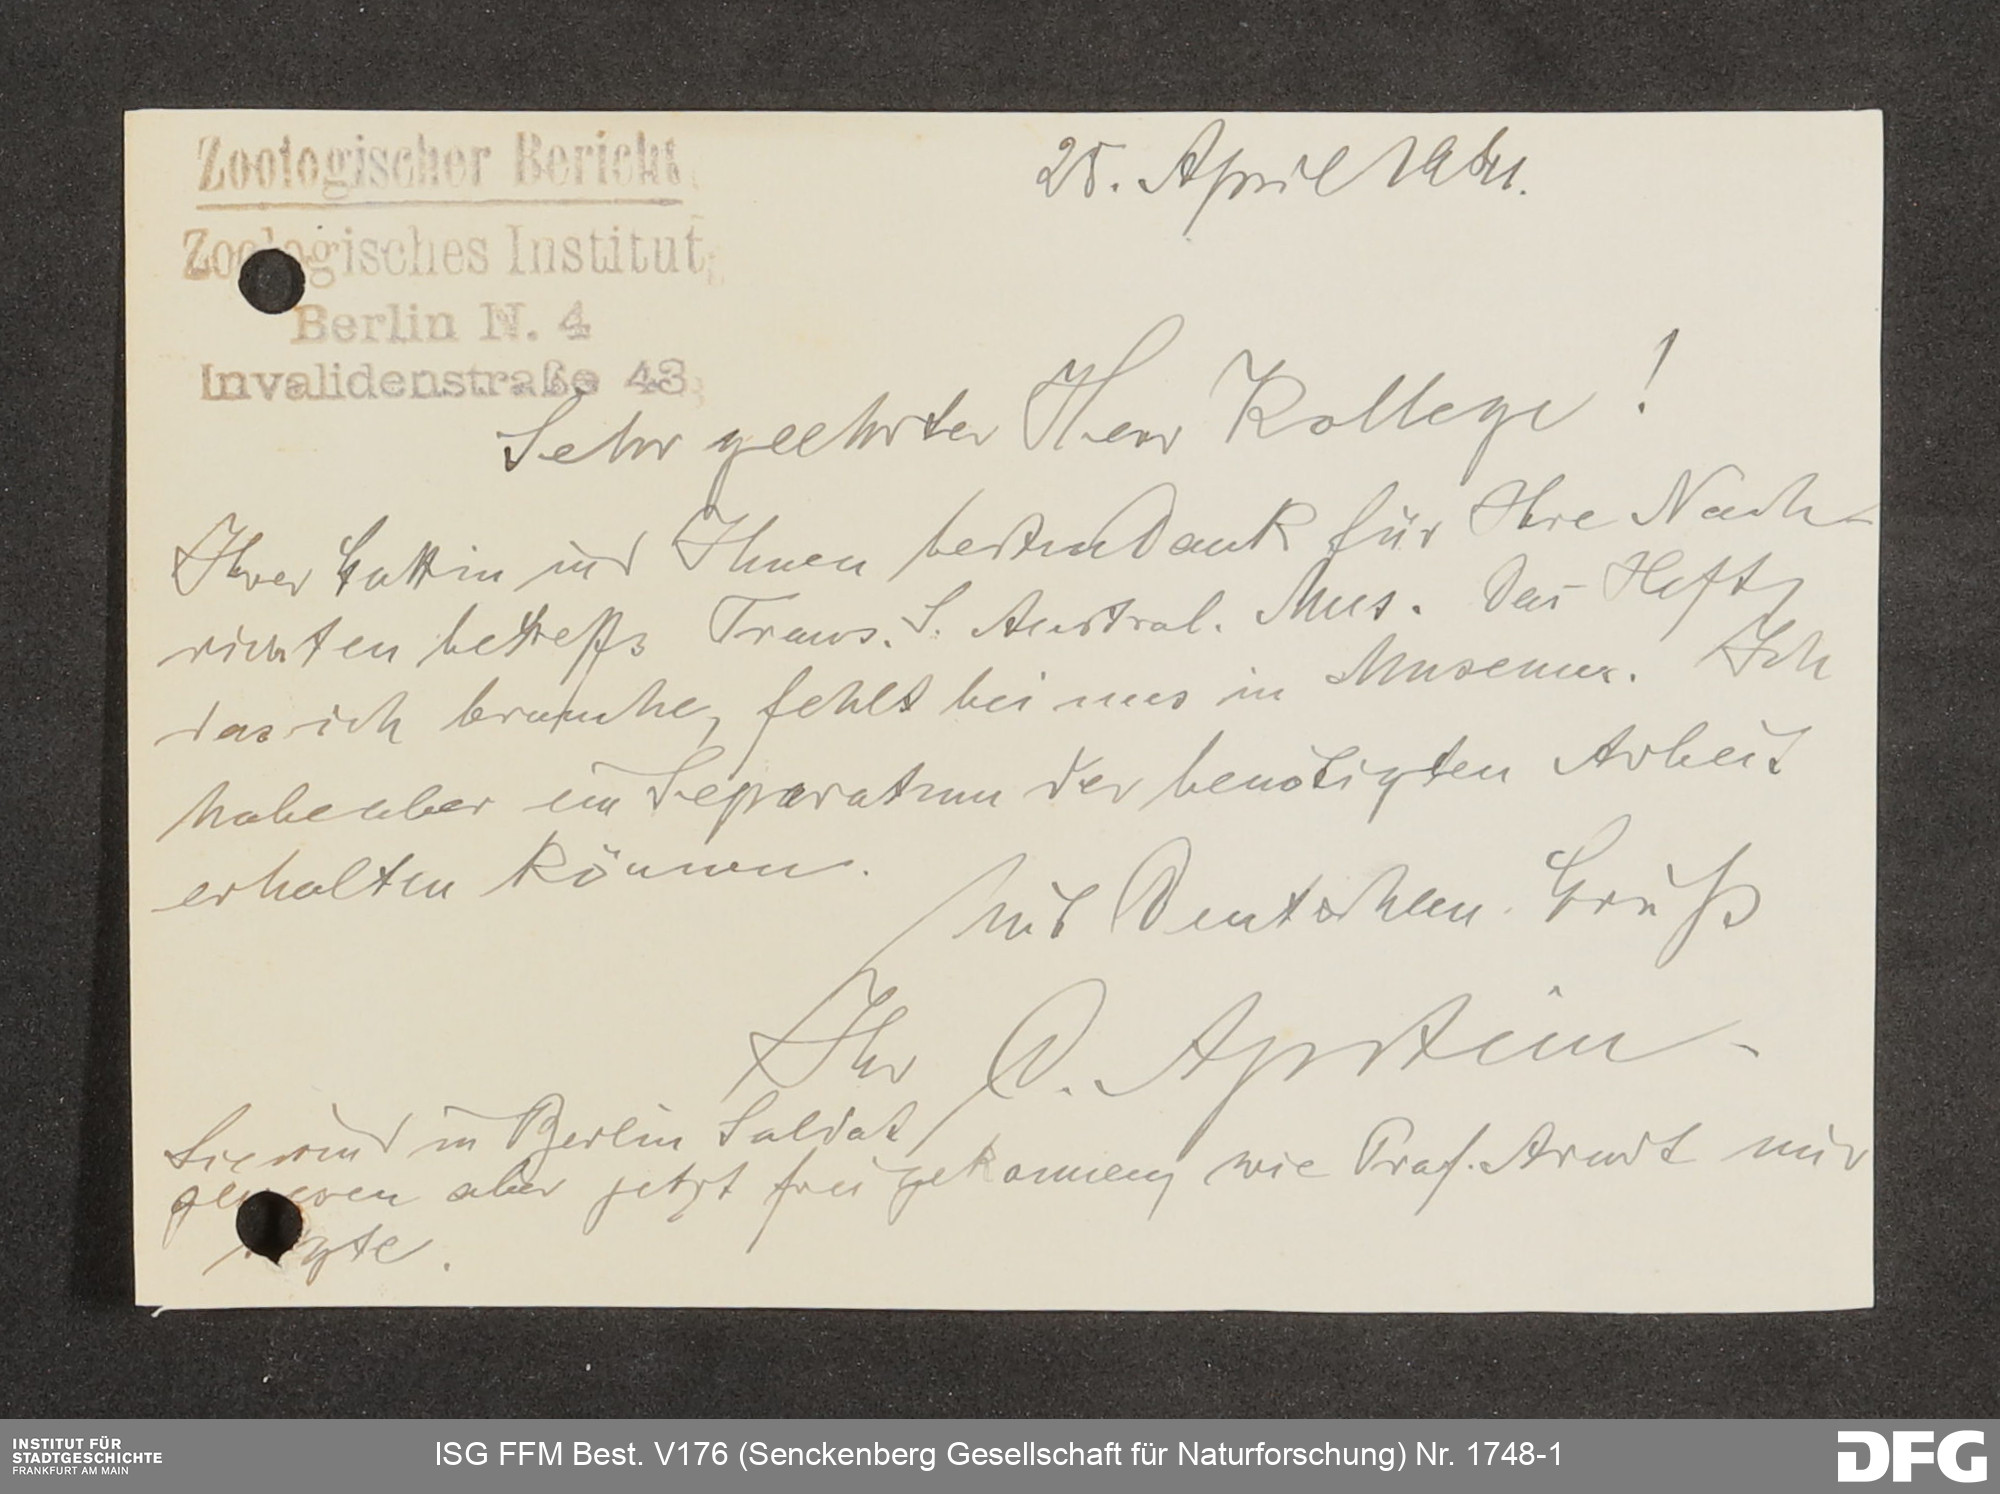 Zoologischer Bericht
Zoologisches Institut,
Berlin N. 4
Invalidenstraße 43
25. April 1941.
Sehr geehrter Herr Kollege!
Ihrer Gattin und Ihnen besten Dank für Ihre Nach-
richten betreffs Trans. S. Austral. Mus. Das Heft,
das ich brauche, fehlt bei uns im Museum. Ich
habe aber ein Separatum der benötigten Arbeit
erhalten können.
Mit Deutschem Gruß
Ihr C. Apstein
Sie sind in Berlin Soldat
gewesen aber jetzt frei gekommen, wie Prof. Arndt mir
sagte.
INSTITUT FÜR
STADTGESCHICHTE
FRANKFURT AM MAIN
ISG FFM Best. V176 (Senckenberg Gesellschaft für Naturforschung) Nr. 1748-1
DFG